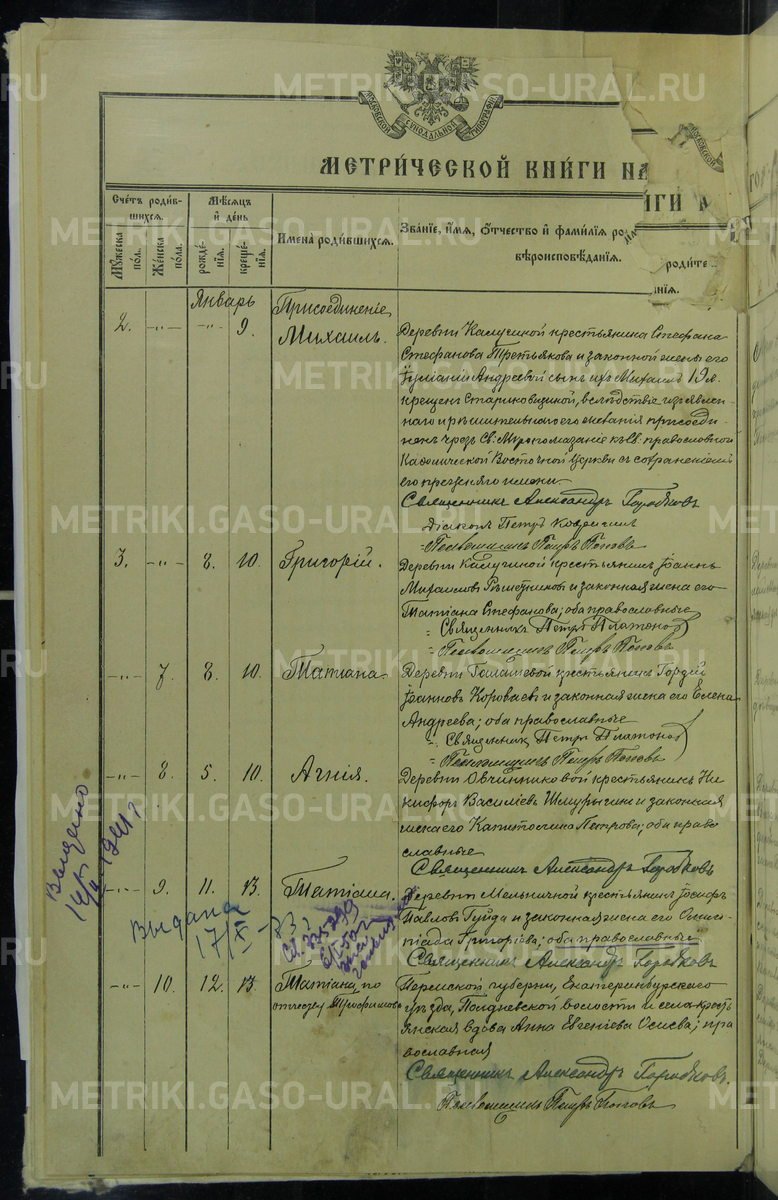 МОСКОВСКОЙ СИНОДАЛЬНОЙ ТИПОГРАФІИ
МЕТРИ́ЧЕСКОЙ КНИ́ГИ НА
ИГИ
Сче́тъ роди́в-
шихся.
Мѣ́сяцъ
и҆ де́нь
Му́жеска
пол.
Же́нска
по́ла.
рожде́-
нїя.
креще́-
нїя.
И҆мена̀ роди́вшихся.
Зва́нїе, и҆́мя, ѻ҆́тчество и҆ фами́лїя ро
роди́те
вѣроисповѣ́данїя.
нїя.
Январь
Присоединеніе
2. -"- -"- 9. Михаилъ.
Деревни Калугиной крестьянина Стефана
Стефанова Третьякова и законной жены его
Іуліаніи Андреевой сынъ ихъ Михаилъ 19 л.
крещен Стариковщиной, вслѣдствіе изъявлен-
наго и рѣшительнаго его желанія присоеди-
ненъ чрезъ Св. Мѵропомазаніе къ Св. православной
Каѳолической Восточной Церкви съ сохраненіемъ
его прежняго имени
Священникъ Александръ Горбковъ
Діаконъ Петръ
Псаломщикъ Петръ Поповъ
3. -"- 8. 10. Григорій.
Деревни Калугиной крестьянинъ Іоаннъ
Михаиловъ Рѣшетниковъ и законная жена его
Татіана Стефанова; оба православные
Священникъ Петръ Платоновъ
Псаломщикъ Петръ Поповъ
-"- 7. 8. 10. Татіана
Деревни Галашевой крестьянинъ Гордій
Іоанновъ Короваевъ и законная жена его Елена
Андреева; оба православные
Священникъ Петръ Платоновъ
Псаломщикъ Петръ Поповъ
-"- 8. 5. 10. Агнія.
Деревни Овчинниковой крестьянинъ Ни-
кифоръ Василіевъ Шмурыгинъ и законная
жена его Капитолина Петрова; оба право-
славные
Священникъ Александръ Горбковъ
Выдано
1941 г
-"- 9. 11. 13. Татіана.
Деревни Мельничной крестьянинъ Іосифъ
Павловъ Гуйда и законная жена его Олим-
піада Григоріева; оба православные
Священникъ Александръ Горбковъ
Выдана
17/X -33 г
-"- 10. 12. 13. Татіана, по
отчеству Трофимова
Пермской губерніи, Екатеринбургскаго
уѣзда, Полдневской волости и села крестъ-
янская вдова Анна Евгеніева Осиева; пра-
вославная
Священникъ Александръ Горбковъ.
Псаломщикъ Петръ Поповъ
METRIKI.GASO-URAL.RU